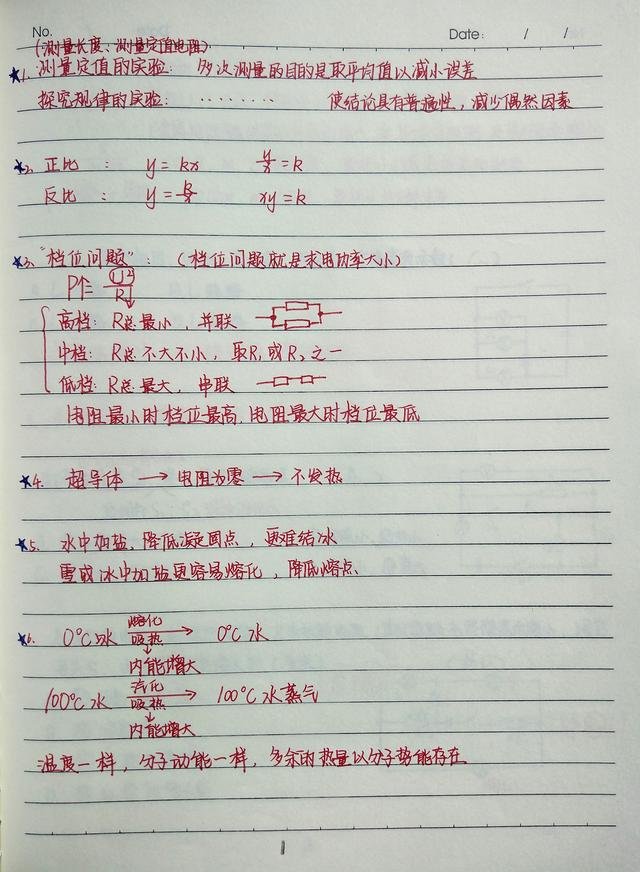 No.
Date: / /
(测量长度、测量定值电阻)
★1. 测量定值的实验: 多次测量的目的是取平均值以减小误差
探究规律的实验: ········ 使结论具有普遍性,减少偶然因素
★2. 正比 : y=kx y/x=k
反比 : y=k/x xy=k
★3. "档位问题": (档位问题就是求电功率大小)
P↑=U²/R↓
高档: R总最小,并联
中档: R总不大不小,取R₁或R₂之一
低档: R总最大,串联
电阻最小时档位最高,电阻最大时档位最低
★4. 超导体 → 电阻为零 → 不发热
★5. 水中加盐,降低凝固点,更难结冰
雪或冰中加盐更容易熔化,降低熔点.
★6. 0°C冰 熔化 吸热 → 0°C水
↓
内能增大
100°C水 汽化 吸热 → 100°C水蒸气
↓
内能增大
温度一样,分子动能一样,多余的热量以分子势能存在.
1